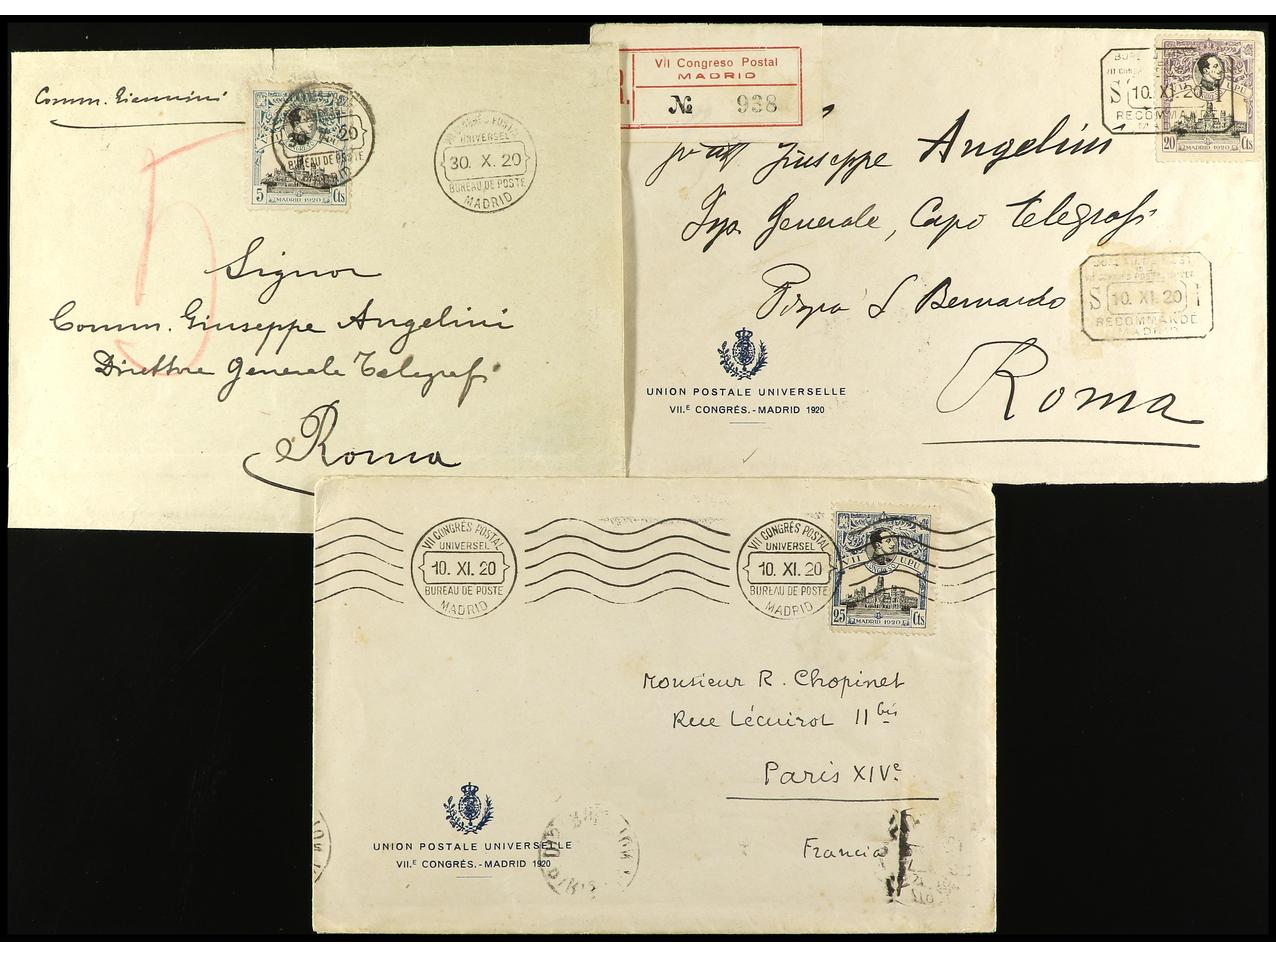 Comm. Giannini
30 X. 20
BUREAU DE POSTE
5 Cts
MADRID 1920
VII CONGRÉS POSTAL
UNIVERSEL
30. X. 20
BUREAU DE POSTE
MADRID
5
Signor
Comm. Giuseppe Angelini
Direttore Generale Telegrafi
Roma
R.
VII Congreso Postal
MADRID
№ 938
VII UPU
20 Cts
MADRID 1920
10. XI. 20
RECOMMANDE
MADRID
Giuseppe Angelini
Generale, Capo Telegrafi
S Bernardo
Roma
10. XI. 20
RECOMMANDE
MADRID
UNION POSTALE UNIVERSELLE
VII.E CONGRÉS.-MADRID 1920
VII CONGRÉS POSTAL
UNIVERSEL
10. XI. 20
BUREAU DE POSTE
MADRID
VII CONGRÉS POSTAL
UNIVERSEL
10. XI. 20
BUREAU DE POSTE
MADRID
VII CONGRESO UPU
25 Cts
MADRID 1920
Monsieur R. Chopinet
Rue Lécuirot 11 bis
Paris XIVe
Francia
UNION POSTALE UNIVERSELLE
VII.E CONGRÉS.-MADRID 1920